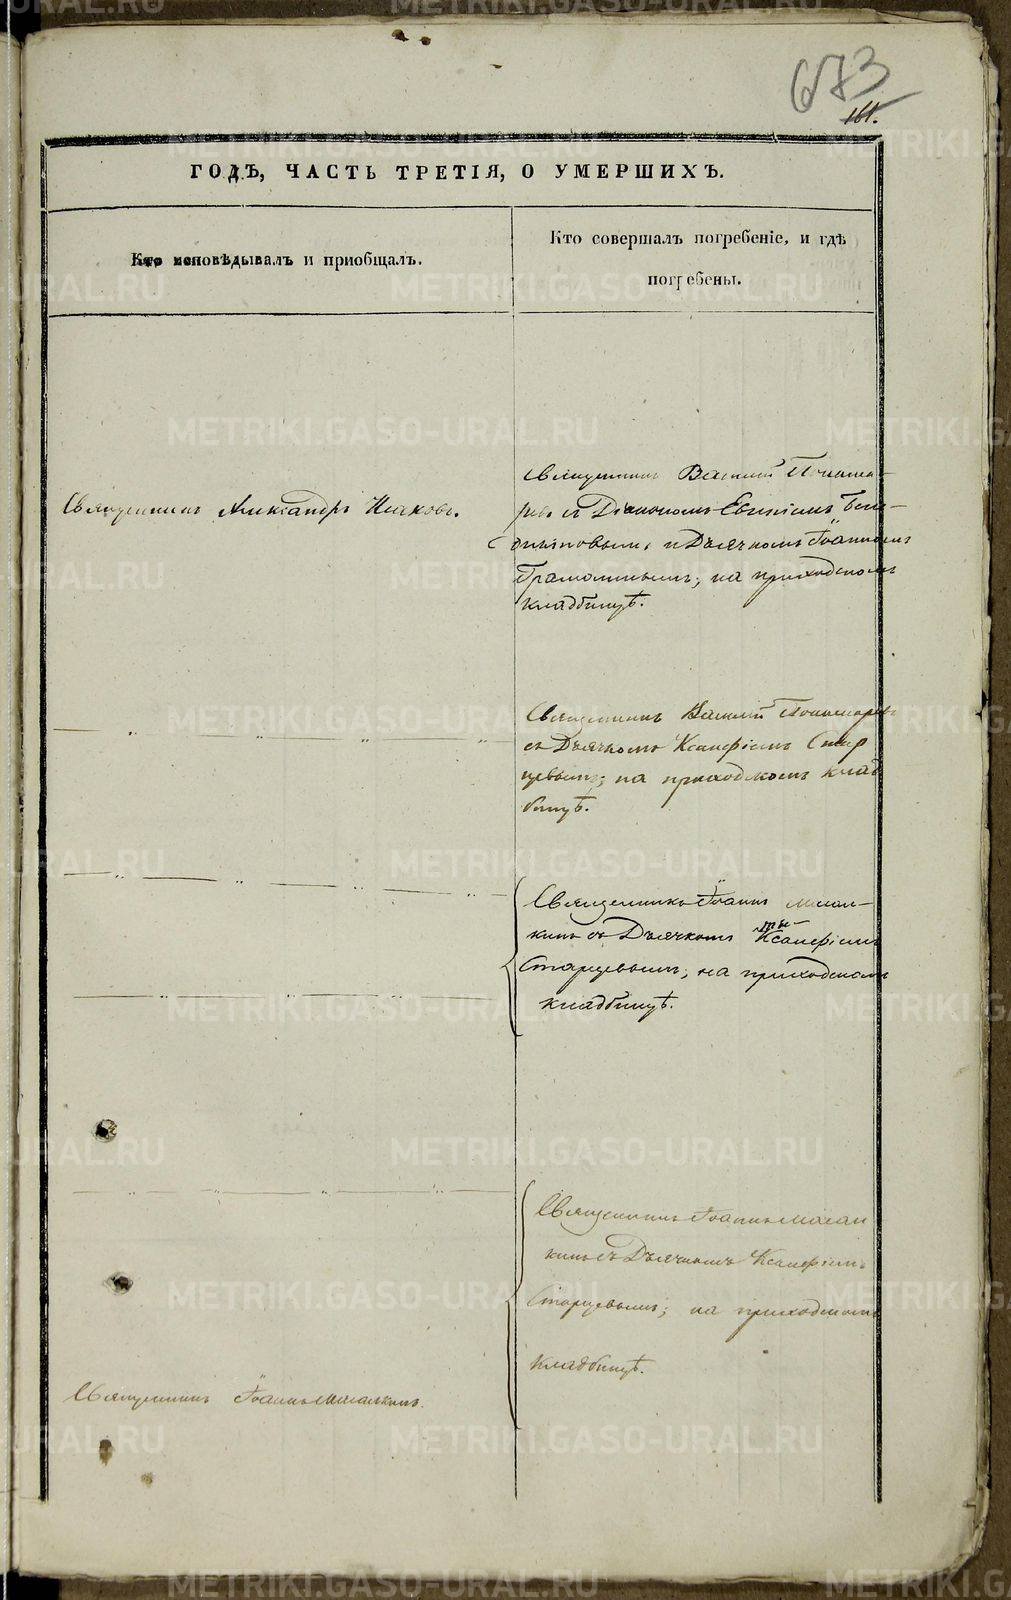 673
161.
ГОДЪ, ЧАСТЬ ТРЕТІЯ, О УМЕРШИХЪ.
Кто исповѣдывалъ и приобщалъ.
Кто совершалъ погребеніе, и гдѣ
погребены.
Священникъ Александръ
Священникъ Василій Понома-
ревъ съ Діакономъ Евгеніемъ
и Дьячкомъ Іоанномъ
Грамолинымъ; на приходскомъ
кладбищѣ.
Священникъ Василій Пономаревъ
съ Дьячкомъ Ксанфіемъ Стар
цевымъ; на приходскомъ клад
бищѣ.
Священникъ Іоаннъ
кинъ съ Дьячкомъ Ксанфіемъ
Старцевымъ, на приходскомъ
кладбищѣ.
Священникъ Іоаннъ
кинъ съ Дьячкомъ Ксанфіемъ
Старцевымъ; на приходскомъ
кладбищѣ.
Священникъ Іоаннъ
METRIKI.GASO-URAL.RU